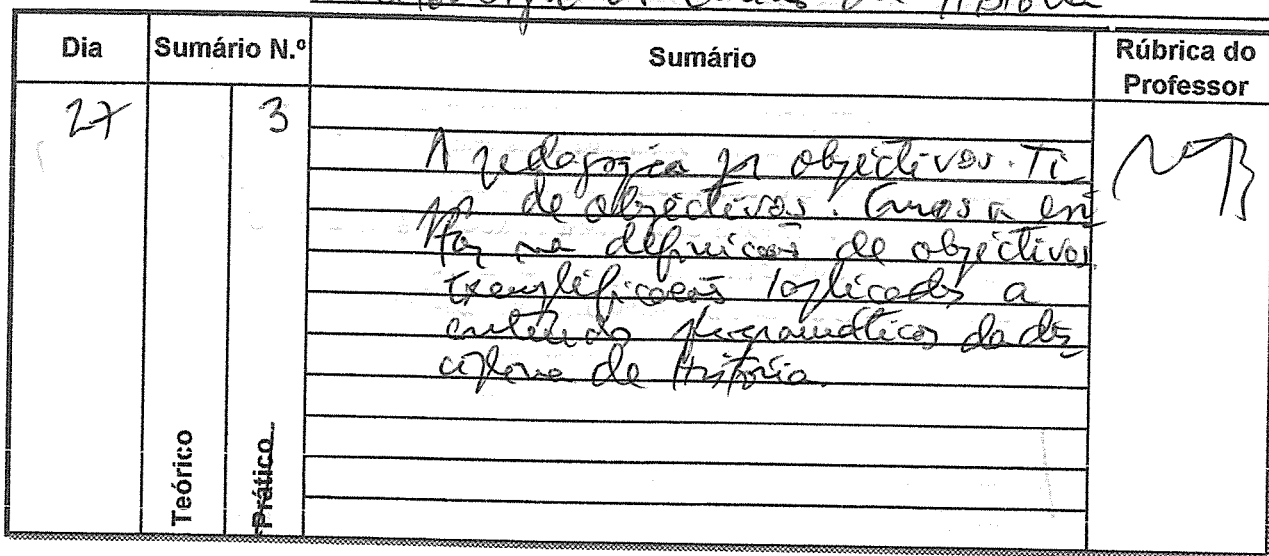 Dia Sumário N.º Sumário Rúbrica do Professor
27 3
A pedagogia por objectivos. Ti-
pos de objectivos. Cuidados a en
na definição de objectivos.
Exemplificações aplicadas a
conteúdos programáticos da dis-
ciplina de História.
Teórico
Prático